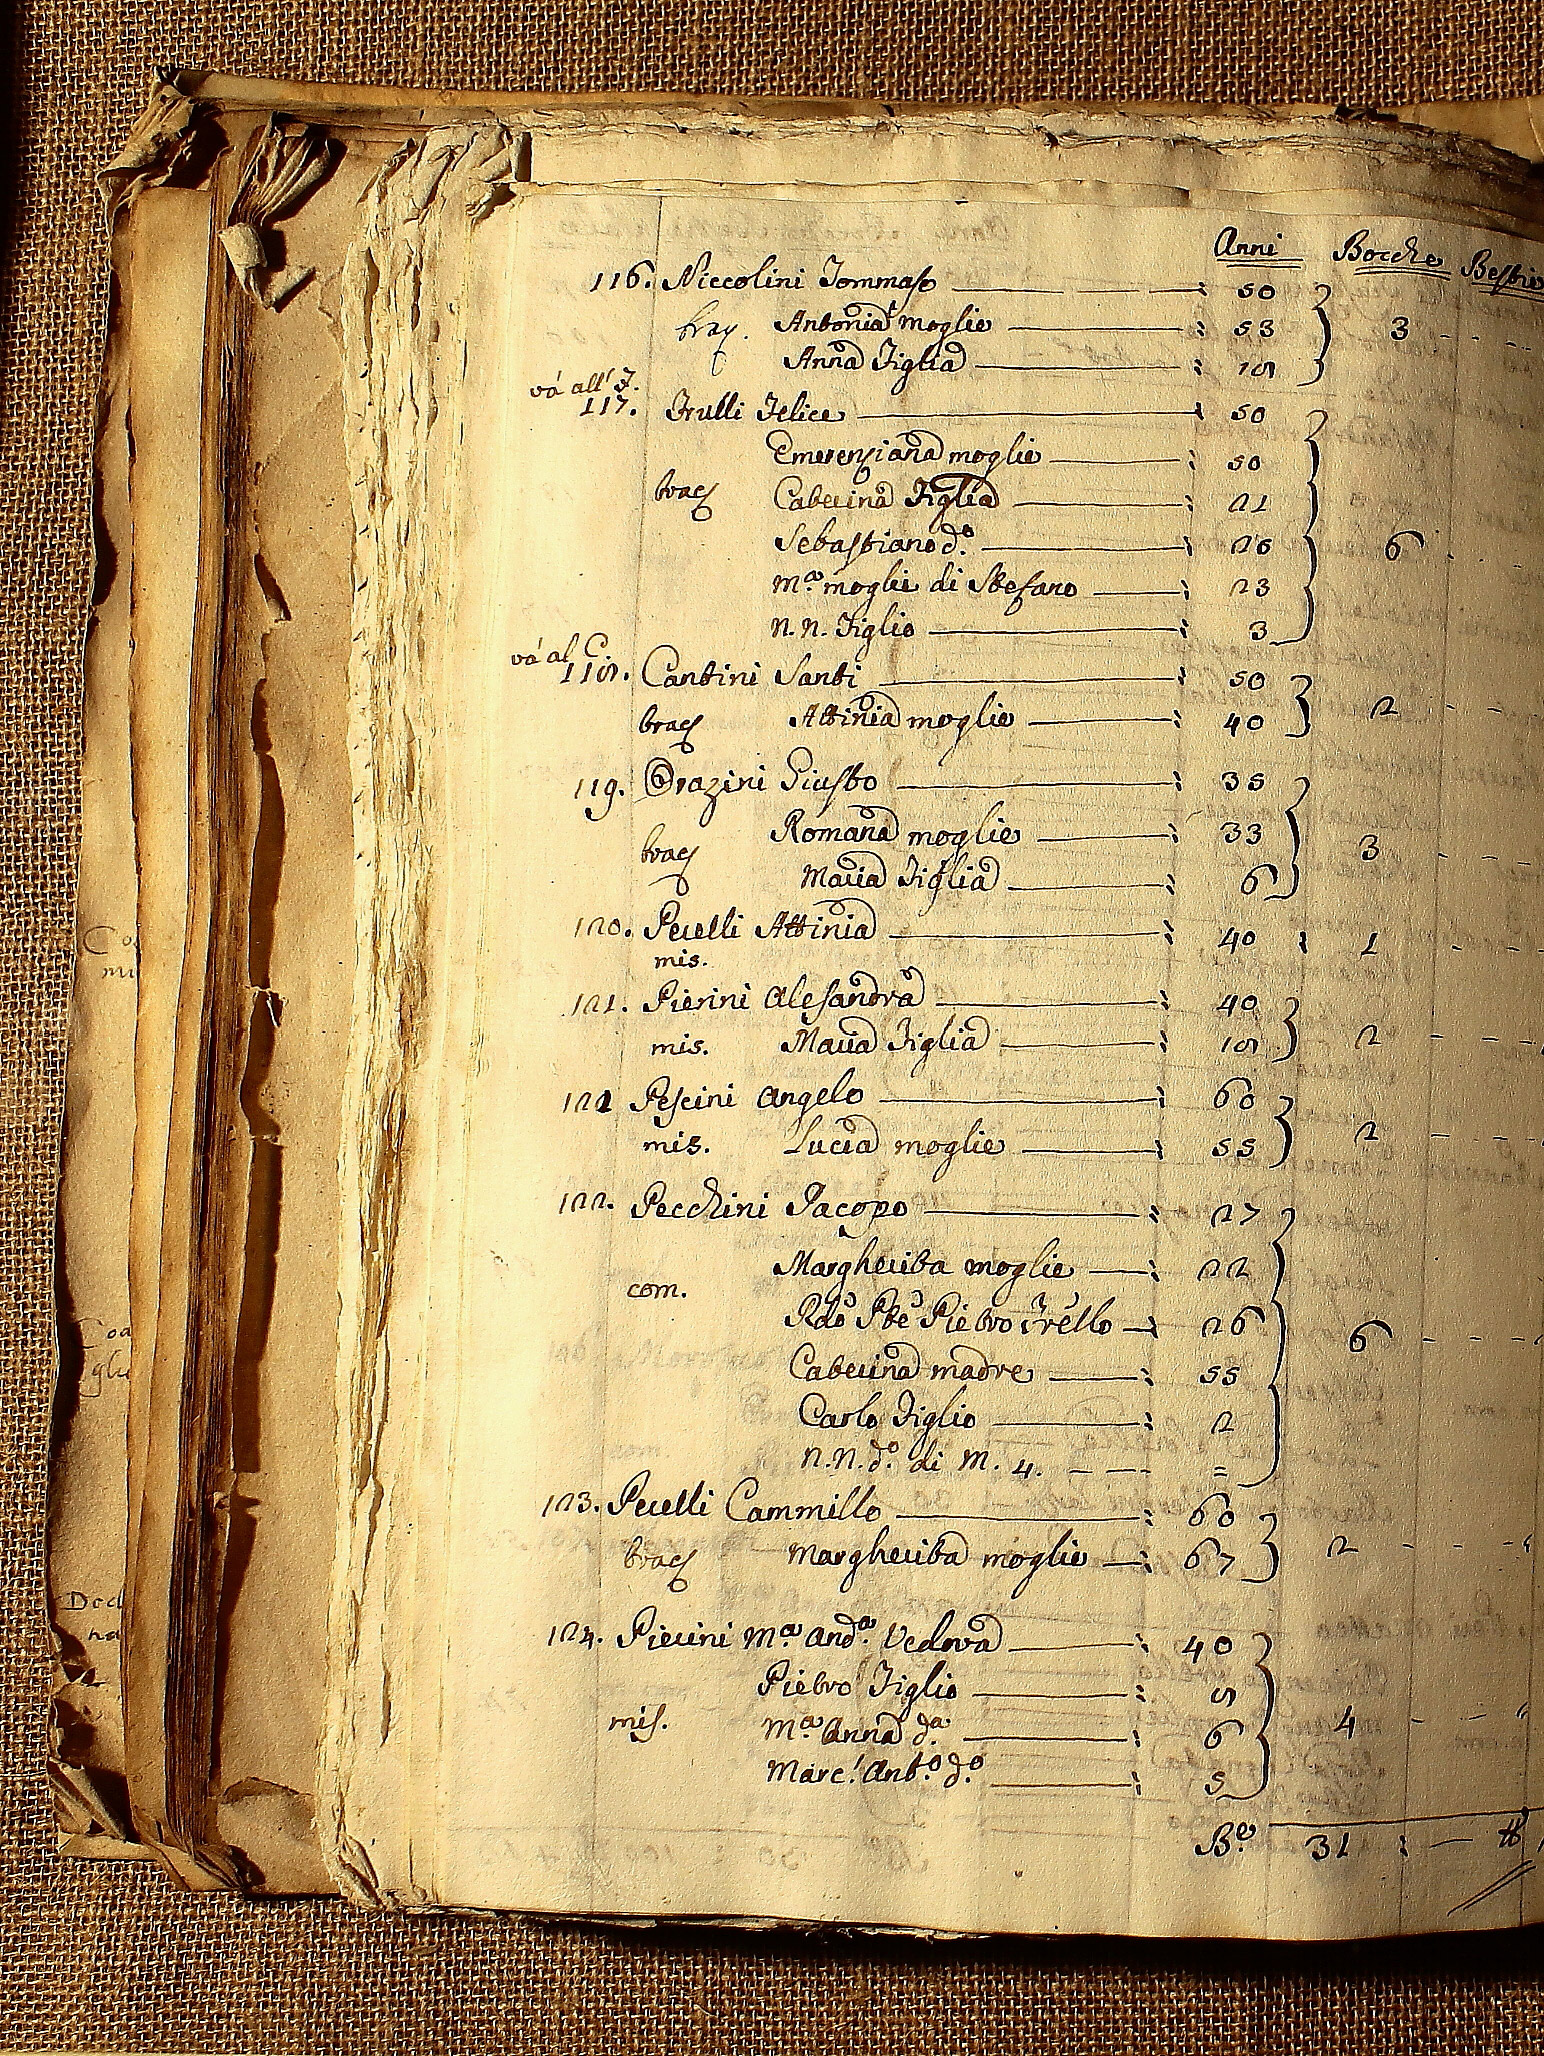 Anni Bocche Bestie
116. Niccolini Tommaso 50
brac. Antonia moglie 53 3
Anna Figlia 18
và all' F.
117. Frulli Felice 50
Emerenziana moglie 50
brac Caterina Figlia 21
Sebastiano d.o 26 6
M.a moglie di Stefano 23
N.N. Figlio 3
và al C.
118. Cantini Santi 50
brac Attinia moglie 40 2
119. Orazini Giusto 35
brac Romana moglie 33 3
Maria Figlia 6
120. Perelli Attinia 40 1
mis.
121. Pierini Alesandra 40
mis. Maria Figlia 18 2
121 Pescini Angelo 60
mis. Lucia moglie 55 2
122. Pecchini Jacopo 27
Margherita moglie 22
com.
Rdo Pte Pietro Frello 26 6
Caterina madre 55
Carlo Figlio 2
N.N. d.o di M. 4. =
123. Perelli Cammillo 60
brac Margherita moglie 67 2
124. Pierini M.a And.a Vedova 40
Pietro Figlio 8
mis. M.a Anna d.a 6 4
Marc' Ant.o d.o 5
B.e 31